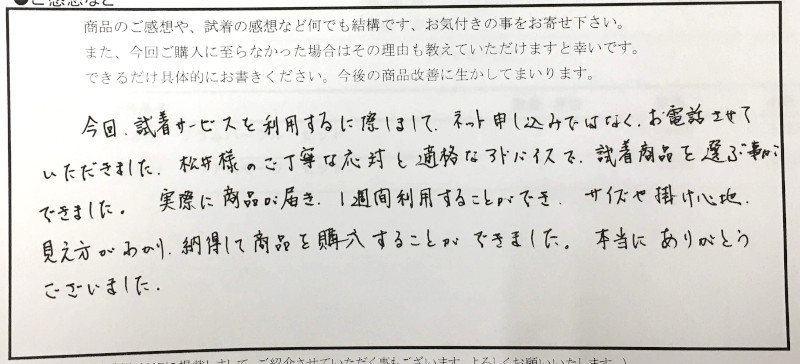 ●ご感想など
商品のご感想や、試着の感想など何でも結構です、お気付きの事をお寄せ下さい。
また、今回ご購入に至らなかった場合はその理由も教えていただけますと幸いです。
できるだけ具体的にお書きください。今後の商品改善に生かしてまいります。
今回、試着サービスを利用するに際しまして、ネット申し込みではなく、お電話させて
いただきました。松井様のご丁寧な応対と適格なアドバイスで、試着商品を選ぶ事が
できました。実際に商品が届き、1週間利用することができ、サイズや掛け心地、
見え方がわかり、納得して商品を購入することができました。本当にありがとう
ございました。
に掲載しまして、ご紹介させていただく事もございます。よろしくお願いいたします。)